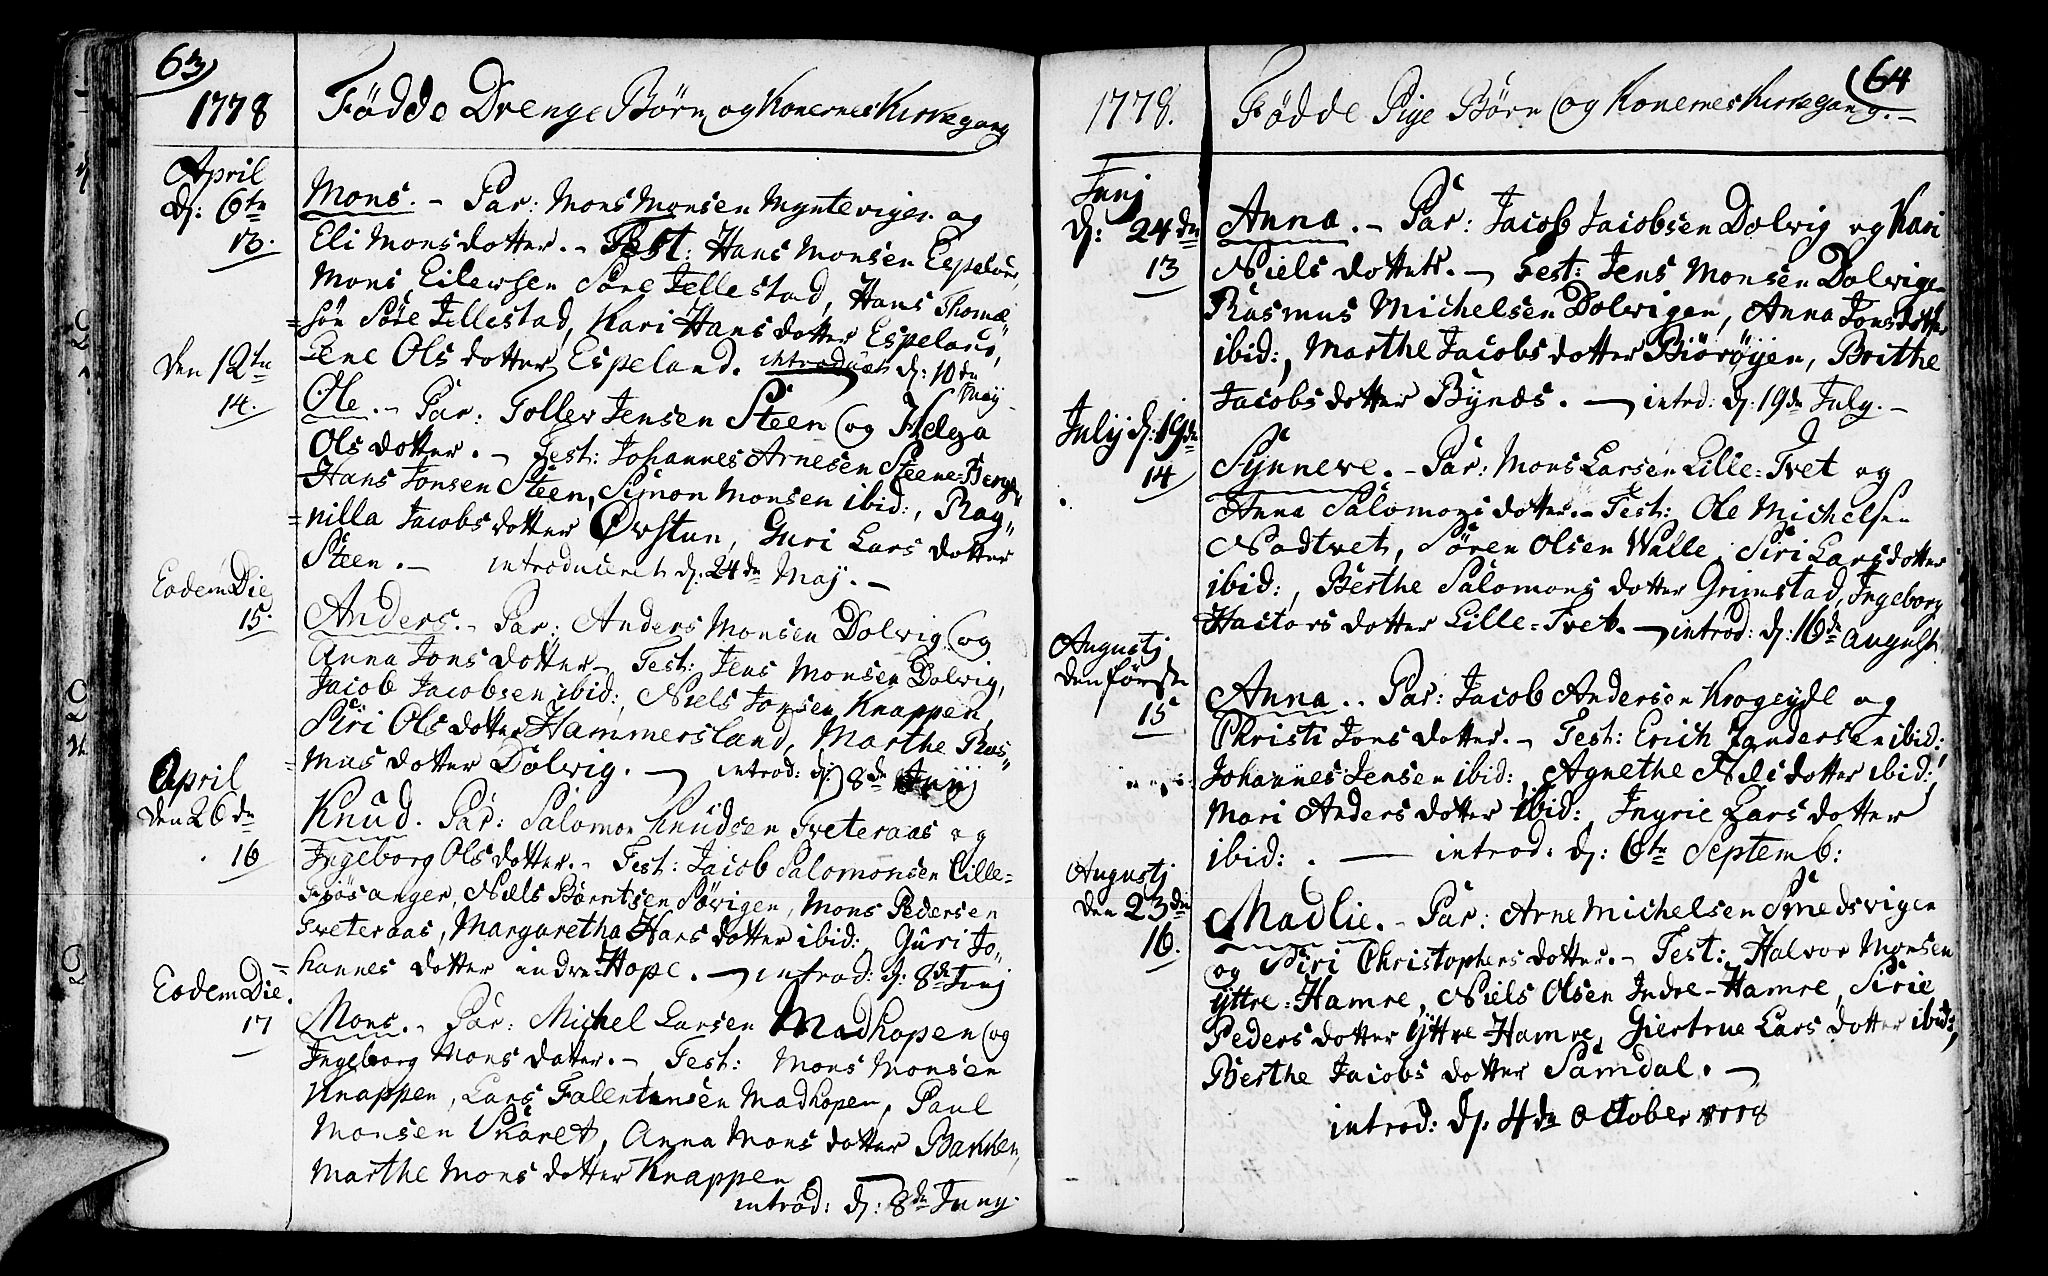 63)
1778 Födde Drenge Börn og Konernes Kirkegang
April
d: 6te
13.
Mons. - Par: Mons Monsen Mynteviger og
Eli Monsdotter. - Test: Hans Monsen Espeland,
Mons Eilersen Söre Jellestad, Hans Thomæ
=sön Söre Jellestad, Kari Hansdotter Espeland,
Lene Olsdotter Espeland. introducet d: 10de
May
den 12te
14.
Ole. - Par: Toller Jensen Steen og Helga
Olsdotter. - Test: Johannes Arnesen Steene=Berge
Hans Jonsen Steen, Simon Monsen ibid:, Rag"
=nilla Jacobsdotter Örstun, Guri Larsdotter
Steen. - introduceret d: 24de May. -
Eodem Die
15.
Anders. - Par: Anders Monsen Dolvig og
Anna Jonsdotter - Test: Jens Monsen Dolvig,
Jacob Jacobsen ibid:, Niels Jonsen Knappen,
Siri Olsdotter Hammersland, Marthe Ras"
=mus dotter Dolvig. - introd: d: 8de Junij
April
den 26de
16
Knud. Par: Salomon Knudsen Tveteraas og
Ingeborg Olsdotter. - Test: Jacob Salomonsen Lille=
Fiösanger, Niels Berntsen Sörigen, Mons Pedersen
Tveteraas, Margaretha Hansdotter ibid:, Guri Jo"
=hannes dotter indre=Hope. - introd: d: 8de Junj
Eodem Die.
17
Mons. - Par: Michel Larsen Madhopen og
Ingeborg Mons datter. - Test: Mons Monsen
Knappen, Lars Falentinsen Madhopen, Paul
Monsen Skaret, Anna Mons dotter Bakken,
Marthe Mons dotter Knappen
introd: d: 8de Juny.
(64
1778. Födde Pige Börn og Konernes Kirkegang. -
Junj
d: 24de
13
Anna. - Par: Jacob Jacobsen Dolvig og Kari
Niels dotter. - Test: Jens Monsen Dolvigen
Rasmus Michelsen Dolvigen, Anna Jonsdotter
ibid:, Marthe Jacobsdotter Biöröyen, Brithe
Jacobsdotter Bynæs. - introd: d: 19de July. -
July d: 19de
14
Synneve. - Par: Mons Larsen Lille=Tvet og
Anna Salomonsdotter. - Test: Ole Michelsen
Nodtvet, Sören Olsen Walle, Siri Larsdotter
ibid:, Berthe Salomons dotter Grimstad, Ingeborg
Hactors dotter Lille=Tvet. - introd: d: 16de August.
Augustj
den förste
15
Anna. . Par: Jacob Andersen Krogeyde og
Christi Jonsdotter. - Test: Erich Andersen ibid:,
Johannes Jensen ibid:, Agnethe Nelsdotter ibid:,
Mari Andersdotter ibid:, Ingrie Larsdotter
ibid: . - introd. d: 6te Septemb:
Augustj
den 23de
16.
Madlie. - Par: Arne Michelsen Smedsvigen
og Siri Christophersdotter. - Test: Halvor Monsen
yttre=Hamre, Niels Olsen Indre-Hamre, Sirie
Pedersdotter Yttre-Hamre, Giertrue Larsdotter ibid:,
Berthe Jacobs dotter Samdal. -
introd: d: 4de October 1778